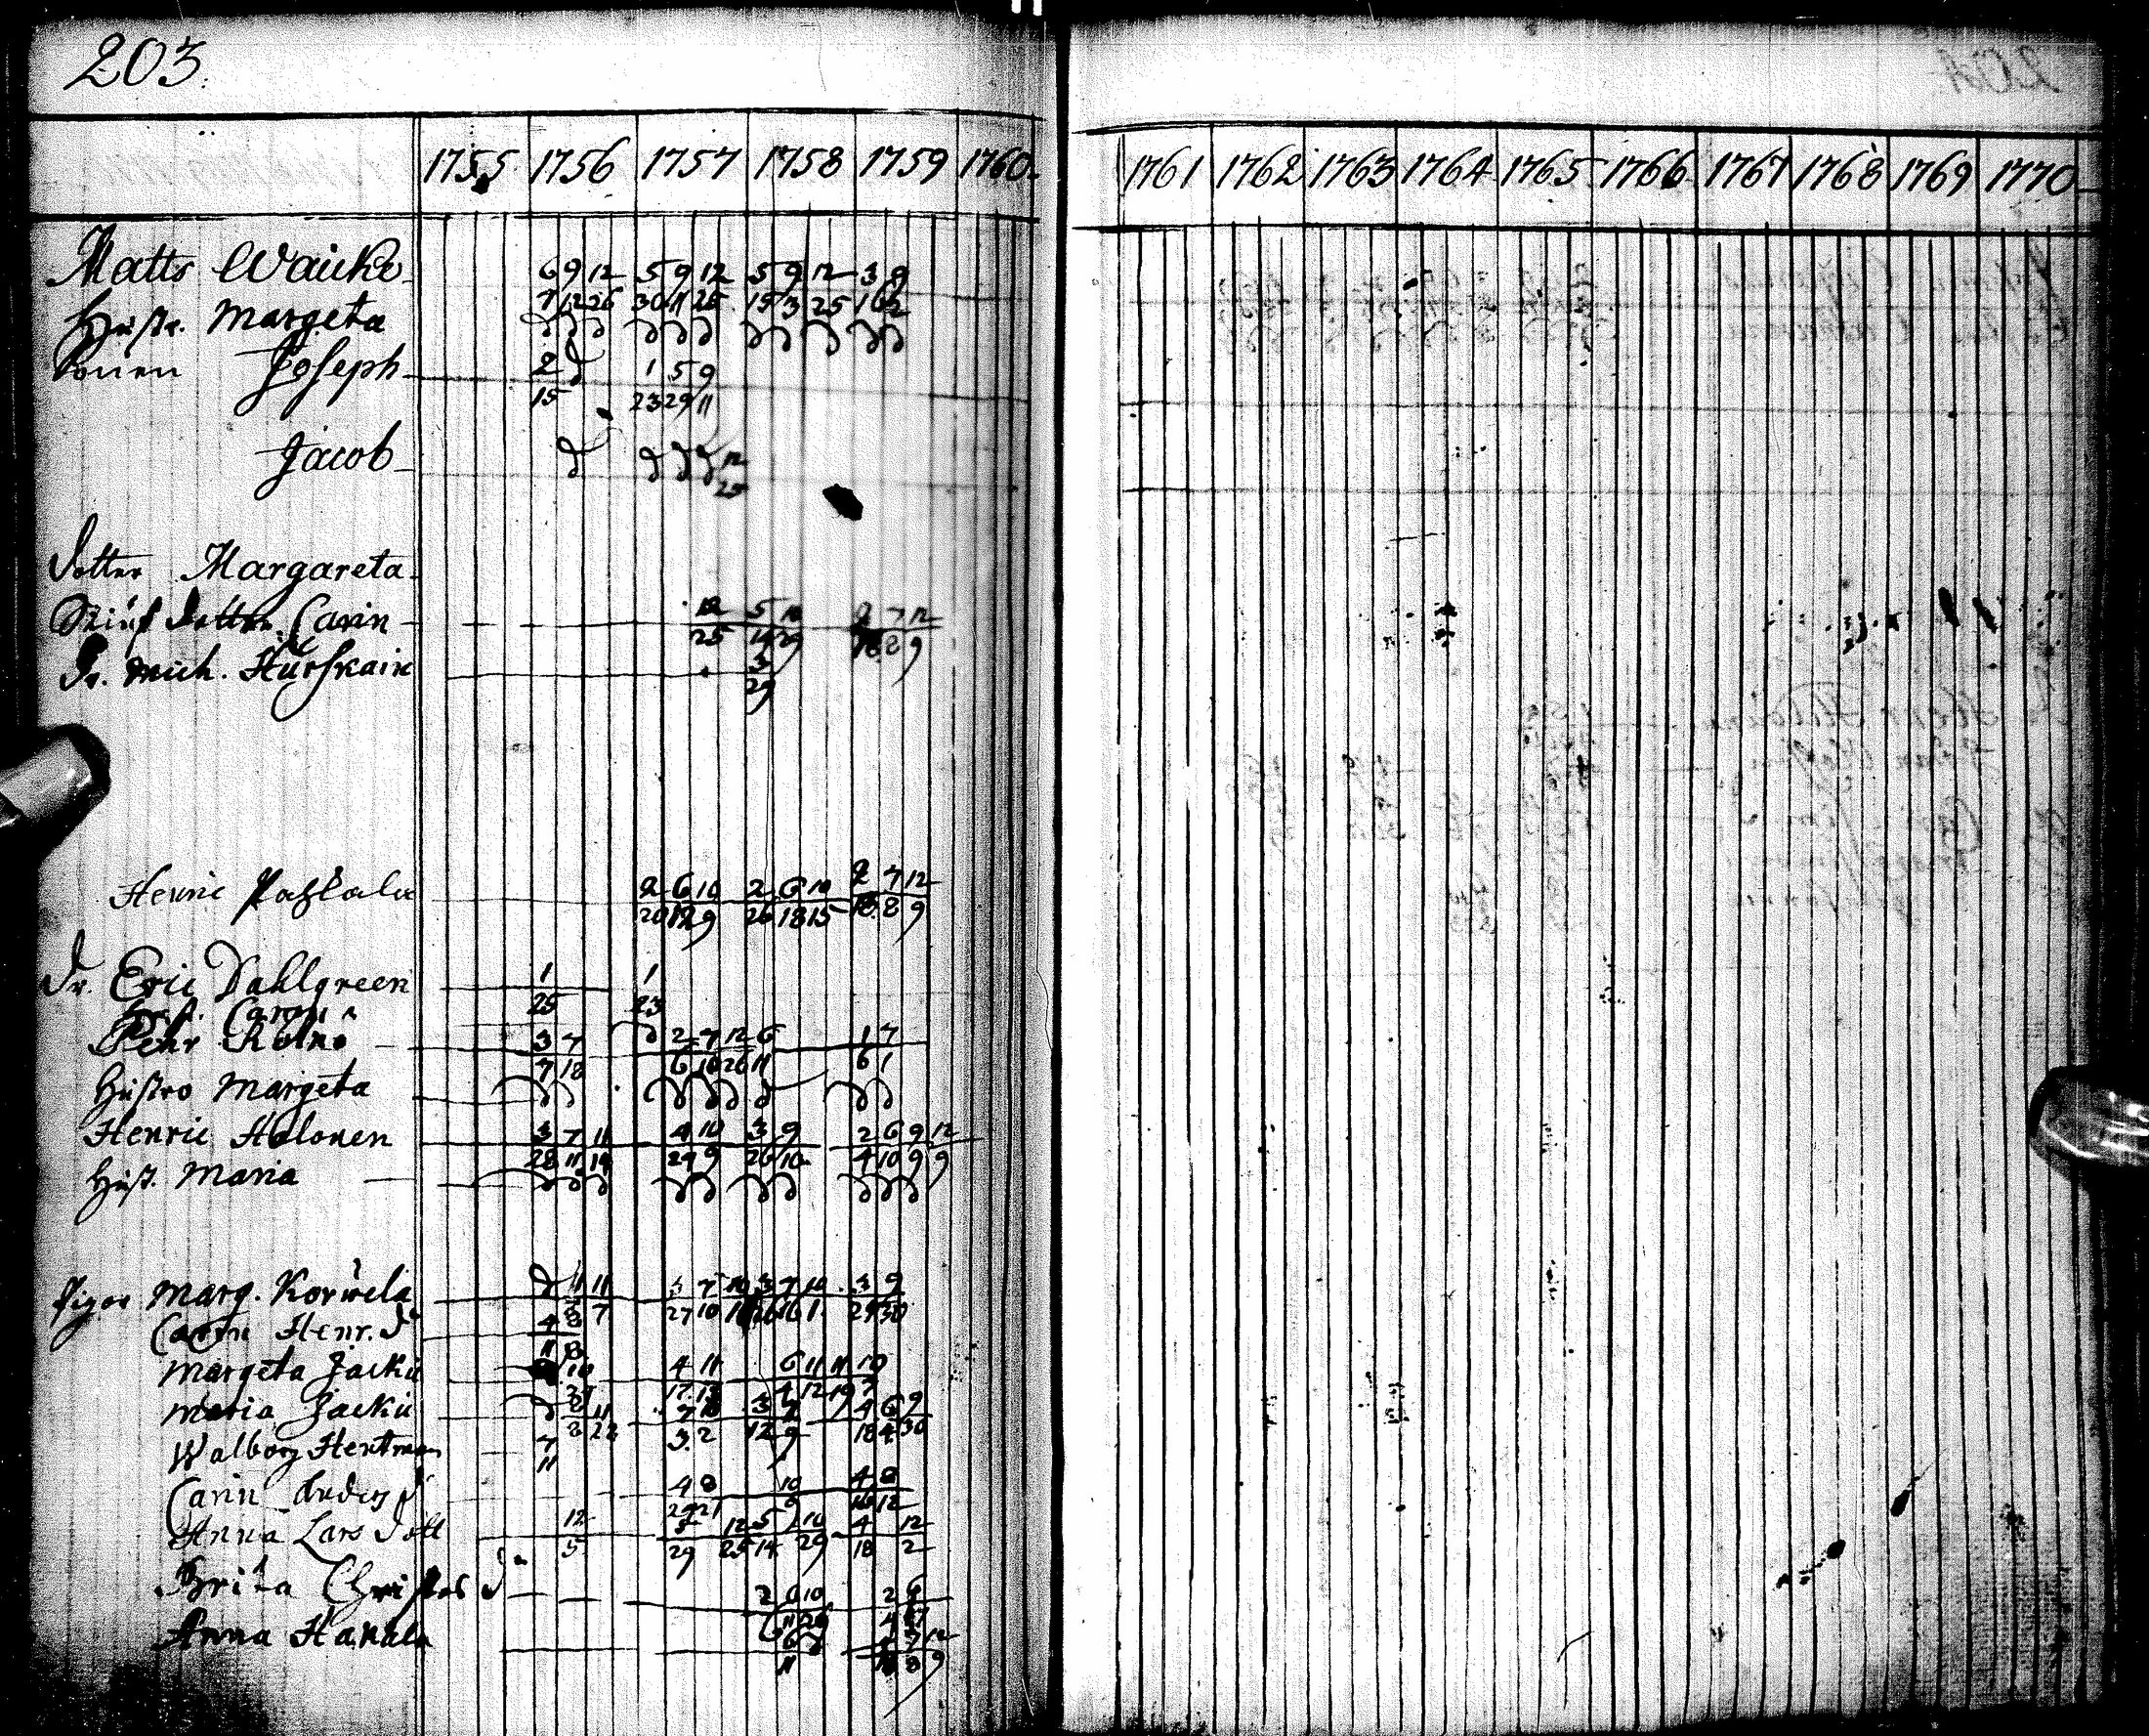 203.
1755 1756 1757 1758 1759 1760 1761 1762 1763 1764 1765 1766 1767 1768 1769 1770
Matts Waicke 6 9 12 5 9 12 5 9 12 3 9
Hustr. Margeta 7 12 26 30 11 25 15 3 25 16 2
Sonen Joseph 2 1 5 9
15 23 29 11
Jacob 12
25
Dotter Margareta
Stiuf dotter Carin 12 5 10 2 7 12
25 14 29 18 8 9
Dr. Mich. Hurskain 3
29
Henric 2 6 10 2 6 10 2 7 12
20 12 9 26 18 15 18 8 9
Dr. Eric Dahlgreen 1 1
Hust. Carin 25 23
Pehr 3 7 2 7 12 6 1 7
7 18 6 10 26 11 6 1
Hustro Margeta
Henric Holonen 3 7 11 4 10 3 9 2 6 9 12
28 11 14 29 9 26 10 4 10 9 9
Hust. Maria
Pigor Marg. Korwela 11 11 3 7 10 3 7 10 3 9
3 7 27 10 16 1 29 30
Carin Henr. D 4 8
11 8
Margeta Jacku 10 4 11 6 11 11 10
17 13 4 12 19 7
Maria Jacku 8 11 7 10 3 7 4 6 9
3 22 3 2 12 9 18 4 30
Walborg Hentman 7
11
Carin Anders d 4 8 10 4 8
29 21 9 16 12
Anna Lars dott 12 5 12 5 10 4 12
5 29 25 14 29 18 2
Brita Christos d. 2 6 10 2 6
11 29 4 17
Anna Hanala 6 7 12
11 18 8 9